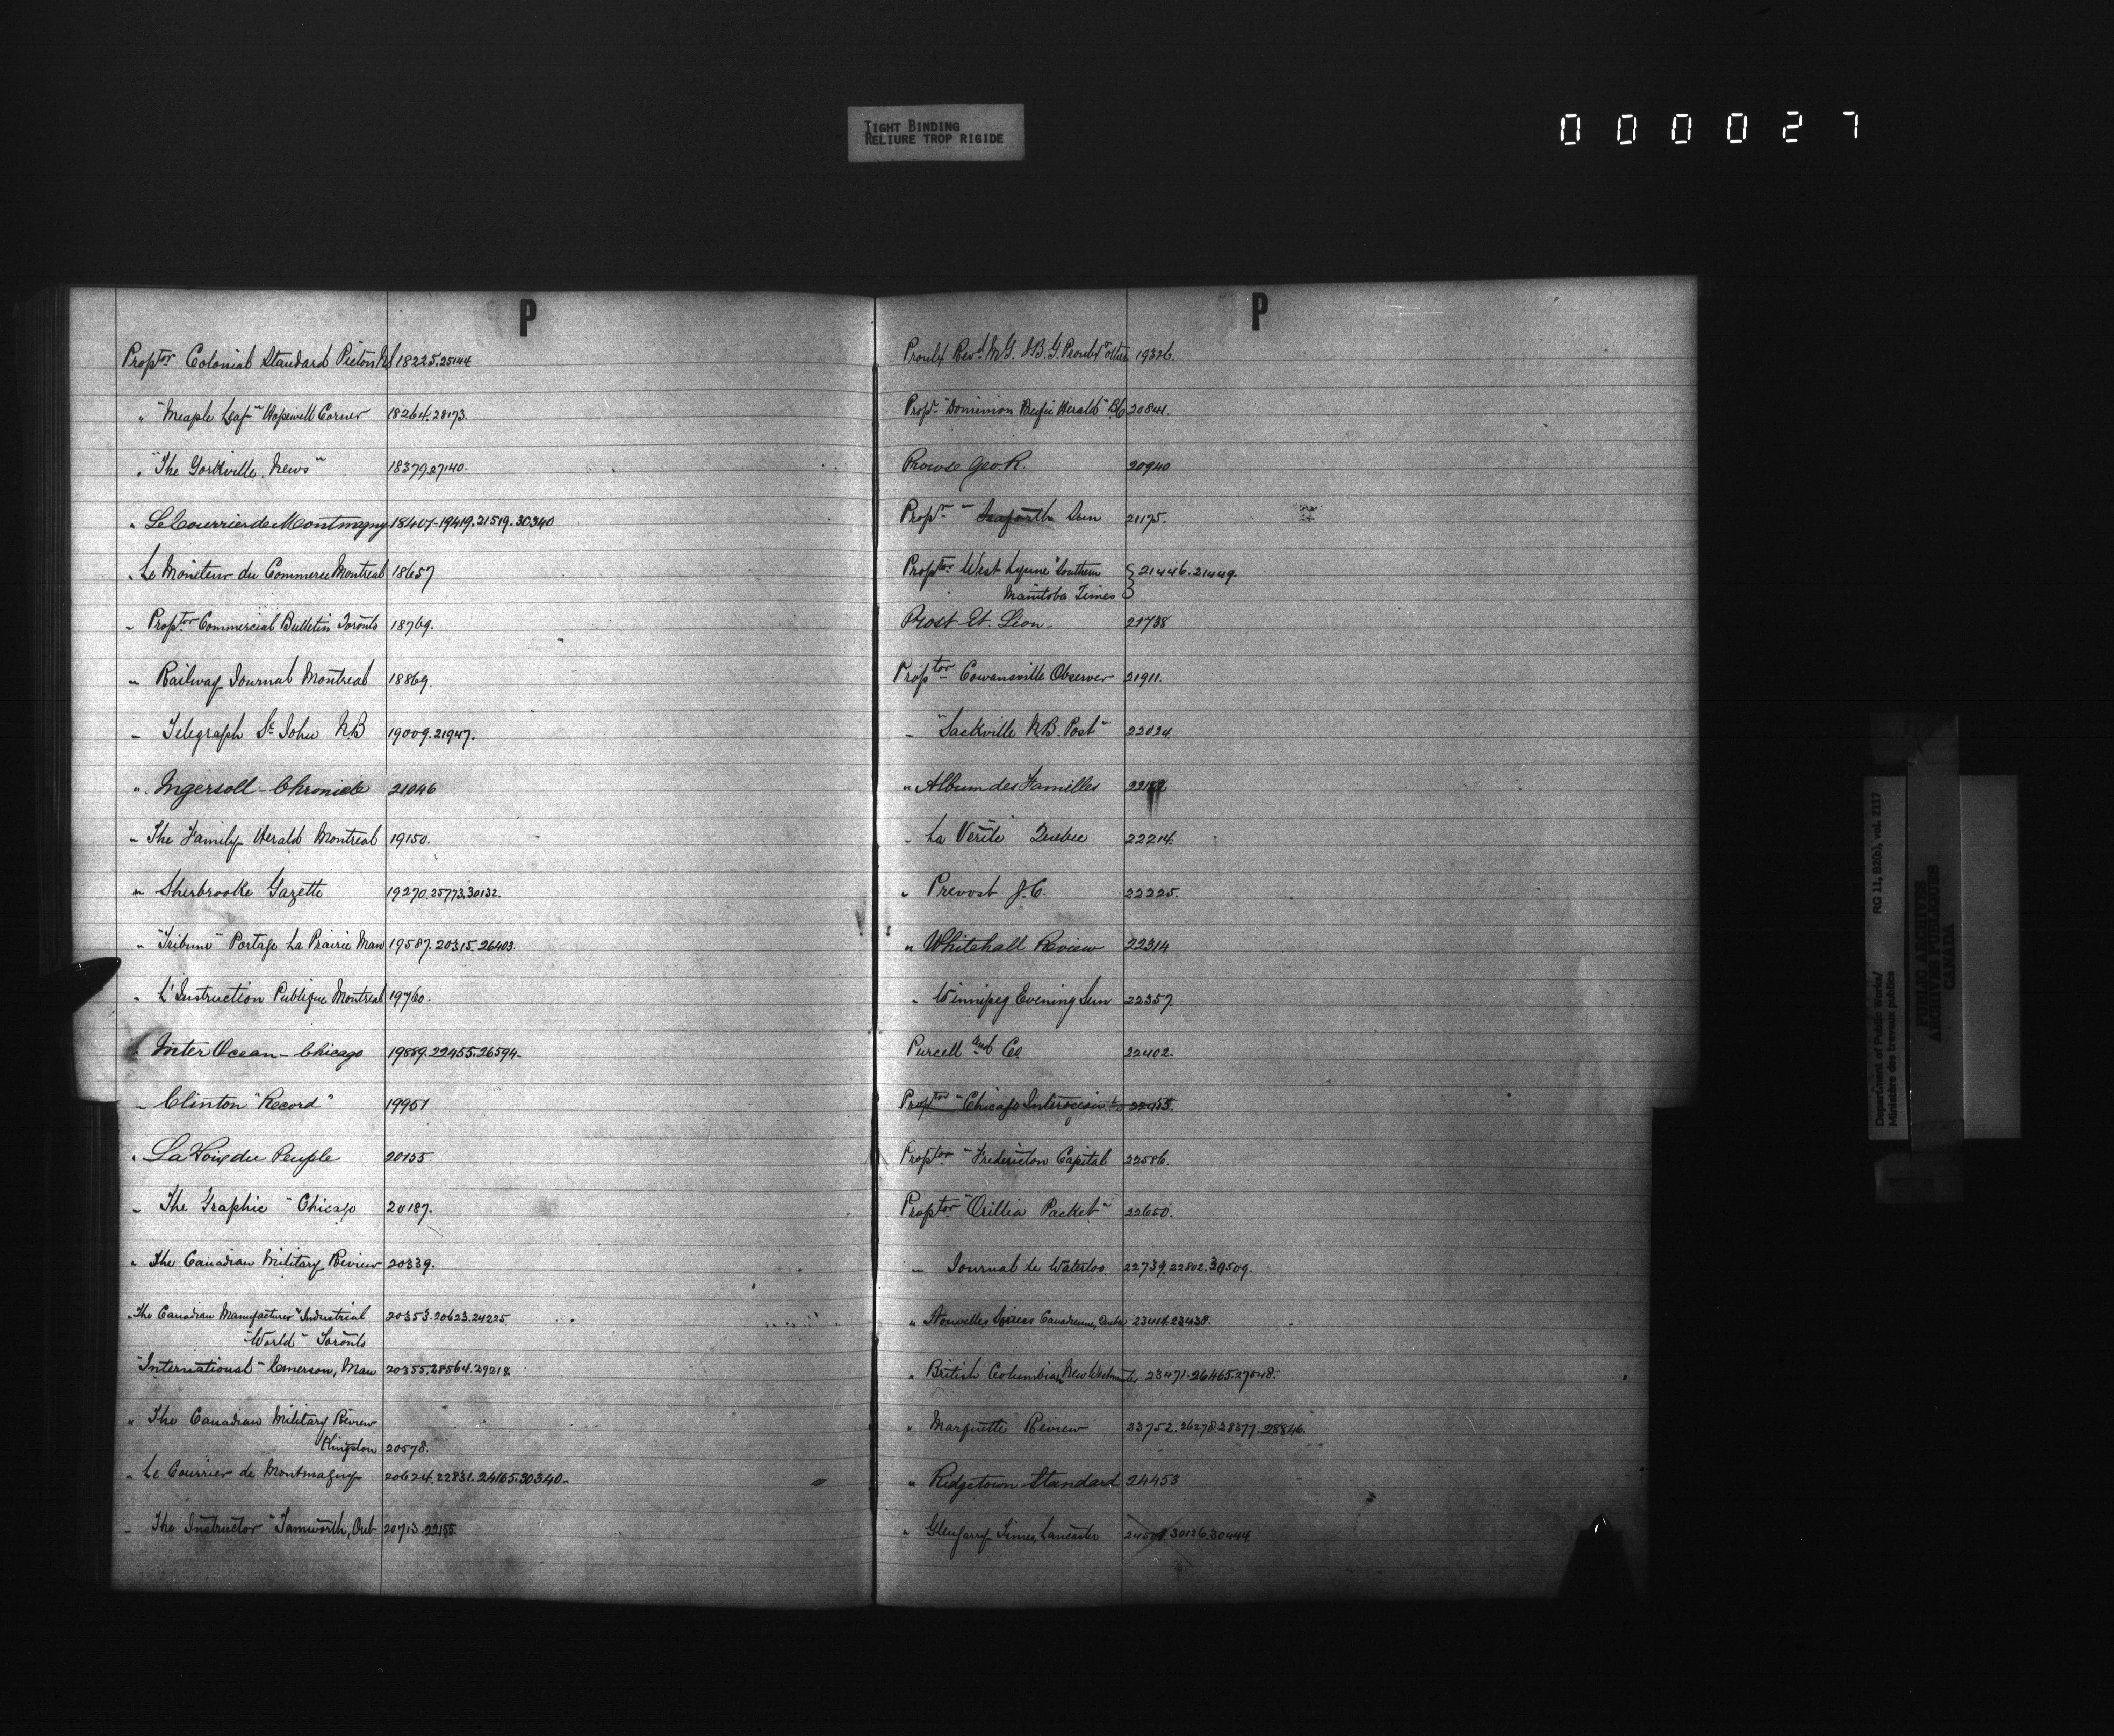 TIGHT BINDING
RELIURE TROP RIGIDE
000027
P
Proptor Colonial Standard Pictou NS 18225.25144
" "Meaple Leaf" Hopewell Corner 18264.28173.
" "The Yorkville News" 18379.27140.
" Le Courrier de Montmagny 18407-19419.21519.30340
" Le Moniteur du Commerce Montreal 18657
" Proptor Commercial Bulletin Toronto 18769.
" Railway Journal Montreal 18869.
" Telegraph St John N.B 19009.21947.
" Ingersoll-Chronicle 21046
" The Family Herald Montreal 19150.
" Sherbrooke Gazette 19270.25773.30132.
" "Tribune" Portage La Prairie Man 19587.20315.26403.
" L'Instruction Publique Montreal 19760.
" Inter Ocean-Chicago 19889.22455.26594-
" Clinton "Record" 19951
" La Voix du Peuple 20155
" The Graphic" Chicago 20187.
" The Canadian Military Review 20339.
" The Canadian Manufacturer "Industrial 20353.20623.24225
World" Toronto
"International" Emerson, Man 20355.28564.29218
" The Canadian Military Review
Kingston 20578.
" Le Courrier de Montmagny 20624.22831.24165.30340-
" The Instructor" Tamworth, Ont 20713.22155
P
Proulx Revd M.G. & B.G. Proulx 19326.
Propr "Dominion Pacific Herald" B.C 20841.
Prowse Geo. R. 20940
Propr " Seaforth Sun 21175.
Proptor West Lynne "Southern 21446.21449.
Manitoba Times
Prost Et. Leon- 21738
Proptor Cowansville Observer 21911.
" "Sackville N.B. Post" 22024.
" Album des Familles
" La Verité Quebec 22214.
" Prevost J.C. 22225.
" Whitehall Review 22314
" Winnipeg Evening Sun 22357.
Purcell and Co 22402.
Proptor "Chicago Interocean" 22455.
Proptor "Fredericton Capital 22586.
Proptor "Orillia Packet" 22650.
" Journal de Waterloo 22739.22802.30509.
" Nouvelles Soirees Canadiennes, Quebec 23414.23438.
" British Columbian New Westminster 23471.26465.27048.
" Marquette Review 23752.26278.28377.28846.
" Ridgetown Standard 24453
" Glengarry Times, Lancaster 30126.30444
Department of Public Works/
Ministère des travaux publics
RG 11, B2(b), vol. 2217
PUBLIC ARCHIVES
ARCHIVES PUBLIQUES
CANADA